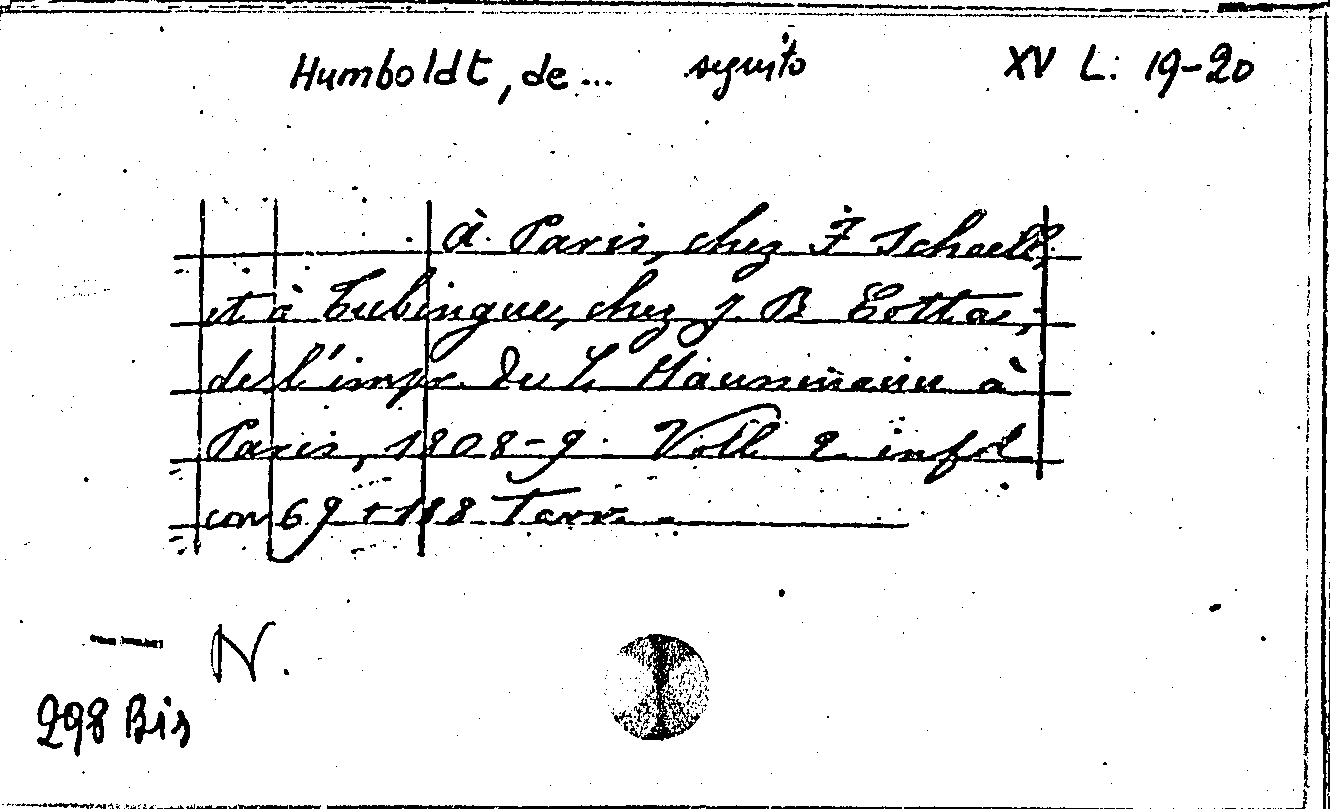 Humboldt, de ... seguito XV L: 19-20
à Paris, chez F Schoell,
et à Tubingue, chez J. B Cotta;
de l'impr. du
à
Paris, 1808-9. Voll 2 infol
con 69 + 188 Tavv.
N.
298 Bis